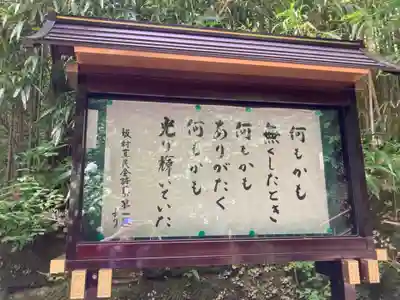 何もかも
無くしたとき
何もかも
ありがたく
何もかも
光り輝いていた
坂村真民全詩集第
より